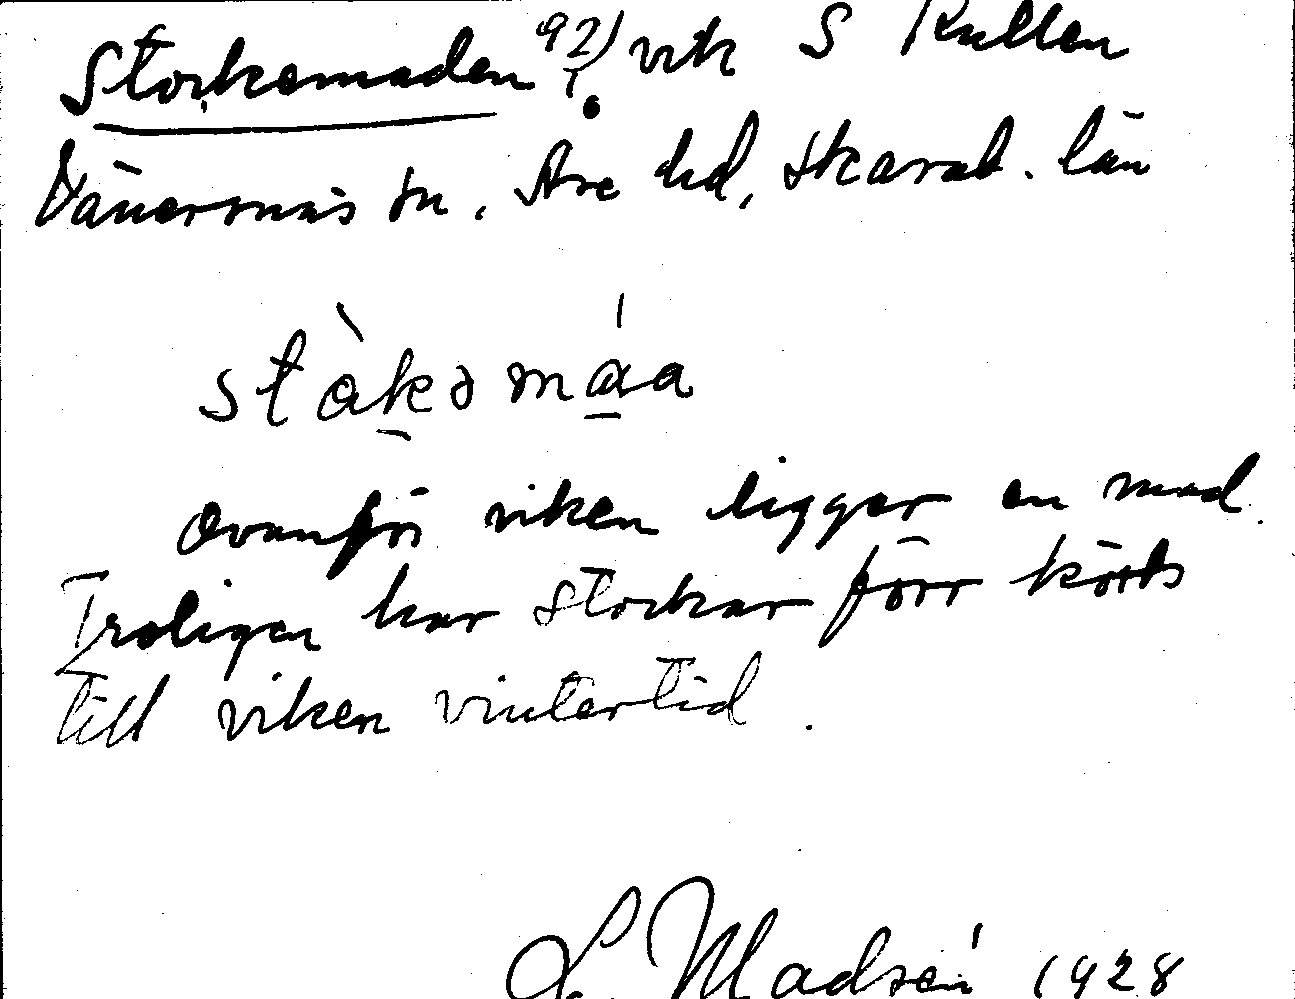 Stockemaden 92) vik S Kullen
Vänersnäs sn. Åse hd, Skarab. län
stàkəmáa
Ovanför viken ligger en mad.
Troligen har stockar förr körts
till viken vintertid.
L. Madsén 1928